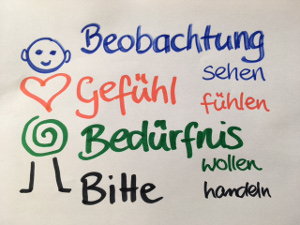 Beobachtung
sehen
Gefühl
fühlen
Bedürfnis
wollen
Bitte
handeln